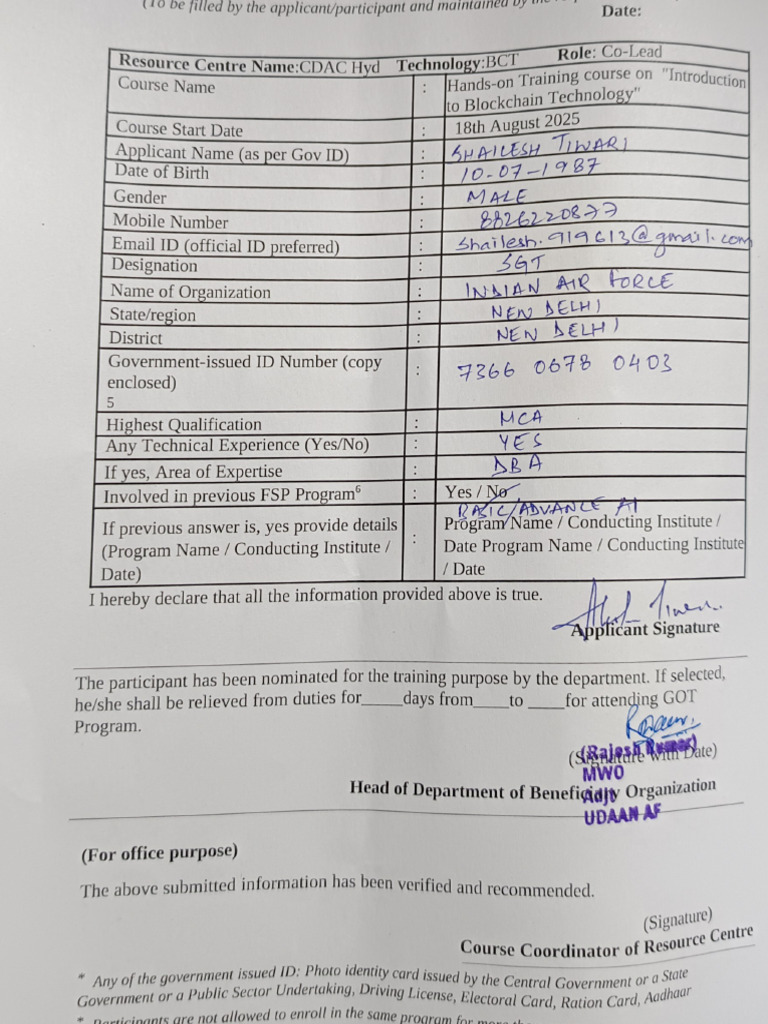 (To be filled by the applicant/participant and maintained by the
Date:
Resource Centre Name:CDAC Hyd Technology:BCT Role: Co-Lead
Course Name : Hands-on Training course on "Introduction
to Blockchain Technology"
Course Start Date : 18th August 2025
Applicant Name (as per Gov ID) : SHAILESH TIWARI
Date of Birth : 10-07-1987
Gender : MALE
Mobile Number : 8826220877
Email ID (official ID preferred) : shailesh.919613@gmail.com
Designation : SGT
Name of Organization : INDIAN AIR FORCE
State/region : NEW DELHI
District : NEW DELHI
Government-issued ID Number (copy : 7366 0678 0403
enclosed)
5
Highest Qualification : MCA
Any Technical Experience (Yes/No) : YES
If yes, Area of Expertise : DBA
Involved in previous FSP Program6 : Yes / No
BASIC/ADVANCE AI
If previous answer is, yes provide details : Program Name / Conducting Institute /
(Program Name / Conducting Institute / Date Program Name / Conducting Institute
Date) / Date
I hereby declare that all the information provided above is true.
Applicant Signature
The participant has been nominated for the training purpose by the department. If selected,
he/she shall be relieved from duties for_____days from____to ____for attending GOT
Program.
(Signature with Date)
(Rajesh Kumar)
MWO
Head of Department of Beneficiary Organization
Adjt
UDAAN AF
(For office purpose)
The above submitted information has been verified and recommended.
(Signature)
Course Coordinator of Resource Centre
* Any of the government issued ID: Photo identity card issued by the Central Government or a State
Government or a Public Sector Undertaking, Driving License, Electoral Card, Ration Card, Aadhaar
* Participants are not allowed to enroll in the same program for more